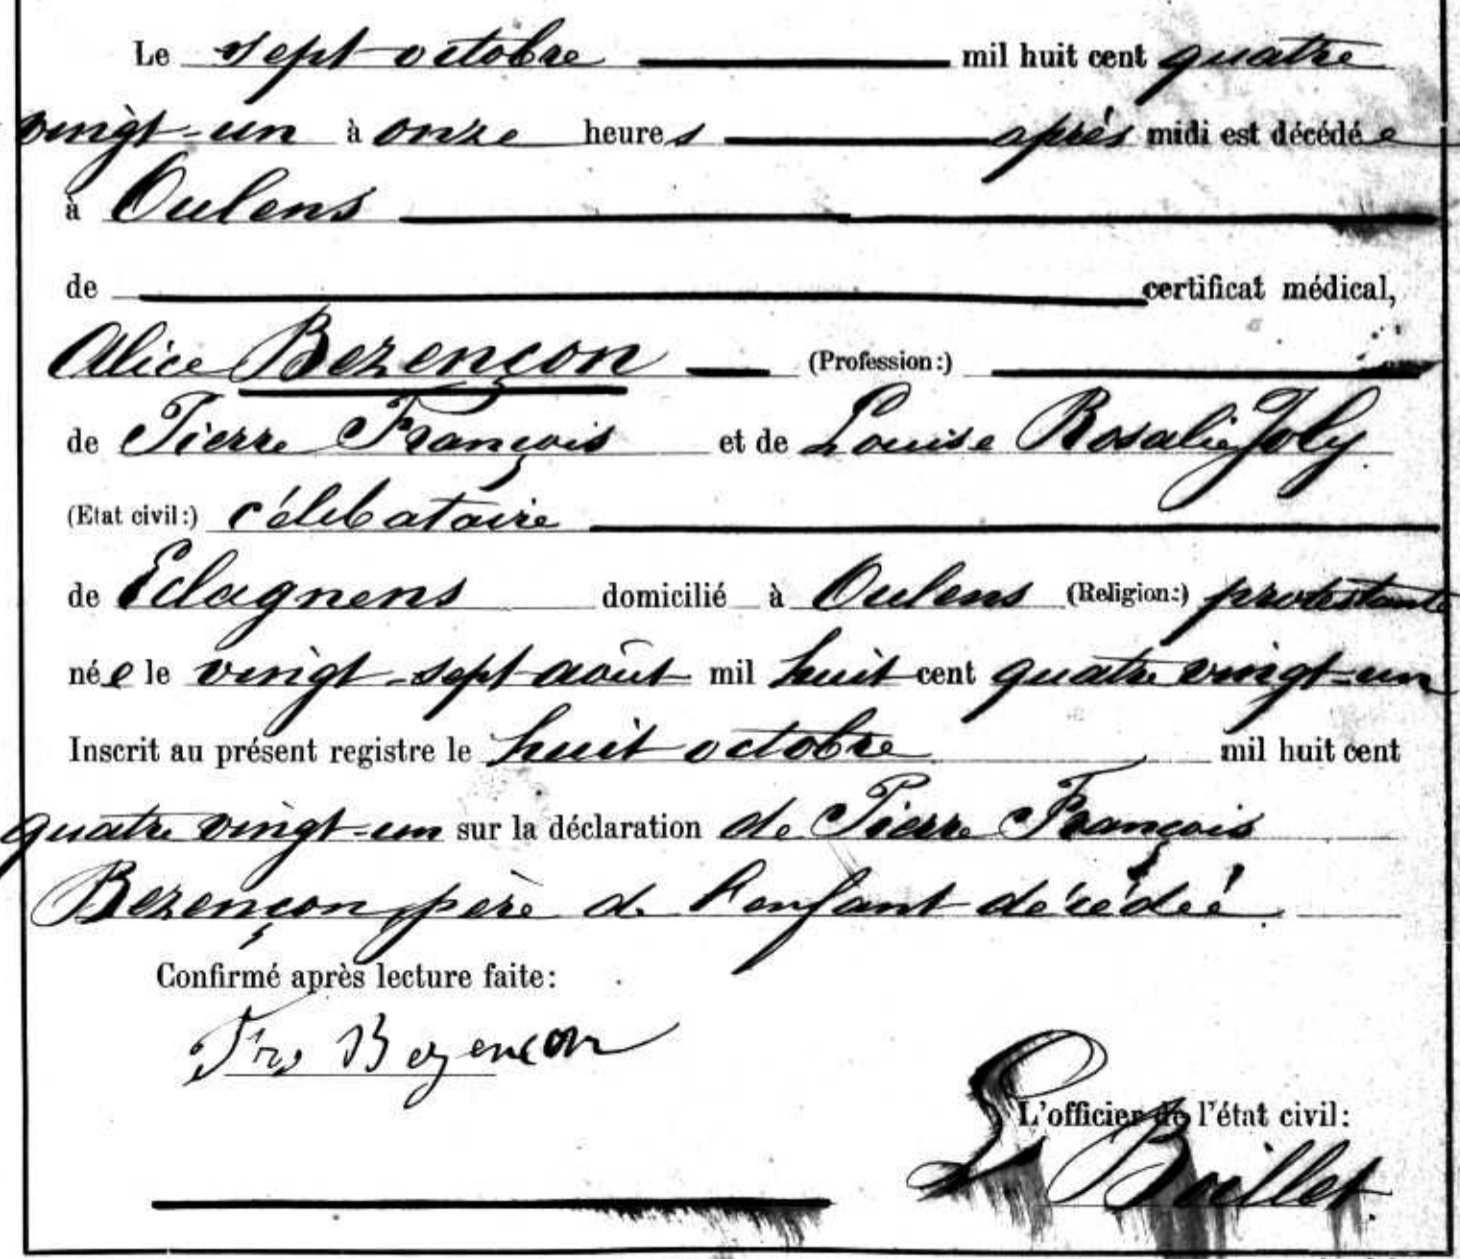 Le sept octobre mil huit cent quatre
vingt-un à onze heures après midi est décédée
à Oulens
de certificat médical,
Alice Bezençon (Profession:)
de Pierre François et de Louise Rosalie Joly
(Etat civil:) célibataire
de Eclagnens domicilié à Oulens (Religion:) protestante
née le vingt-sept août mil huit cent quatre vingt-un
Inscrit au présent registre le huit octobre mil huit cent
quatre vingt-un sur la déclaration de Pierre François
Bezençon, père de l'enfant décédé
Confirmé après lecture faite:
Frs Bezencon
L'officier de l'état civil:
L Boillet